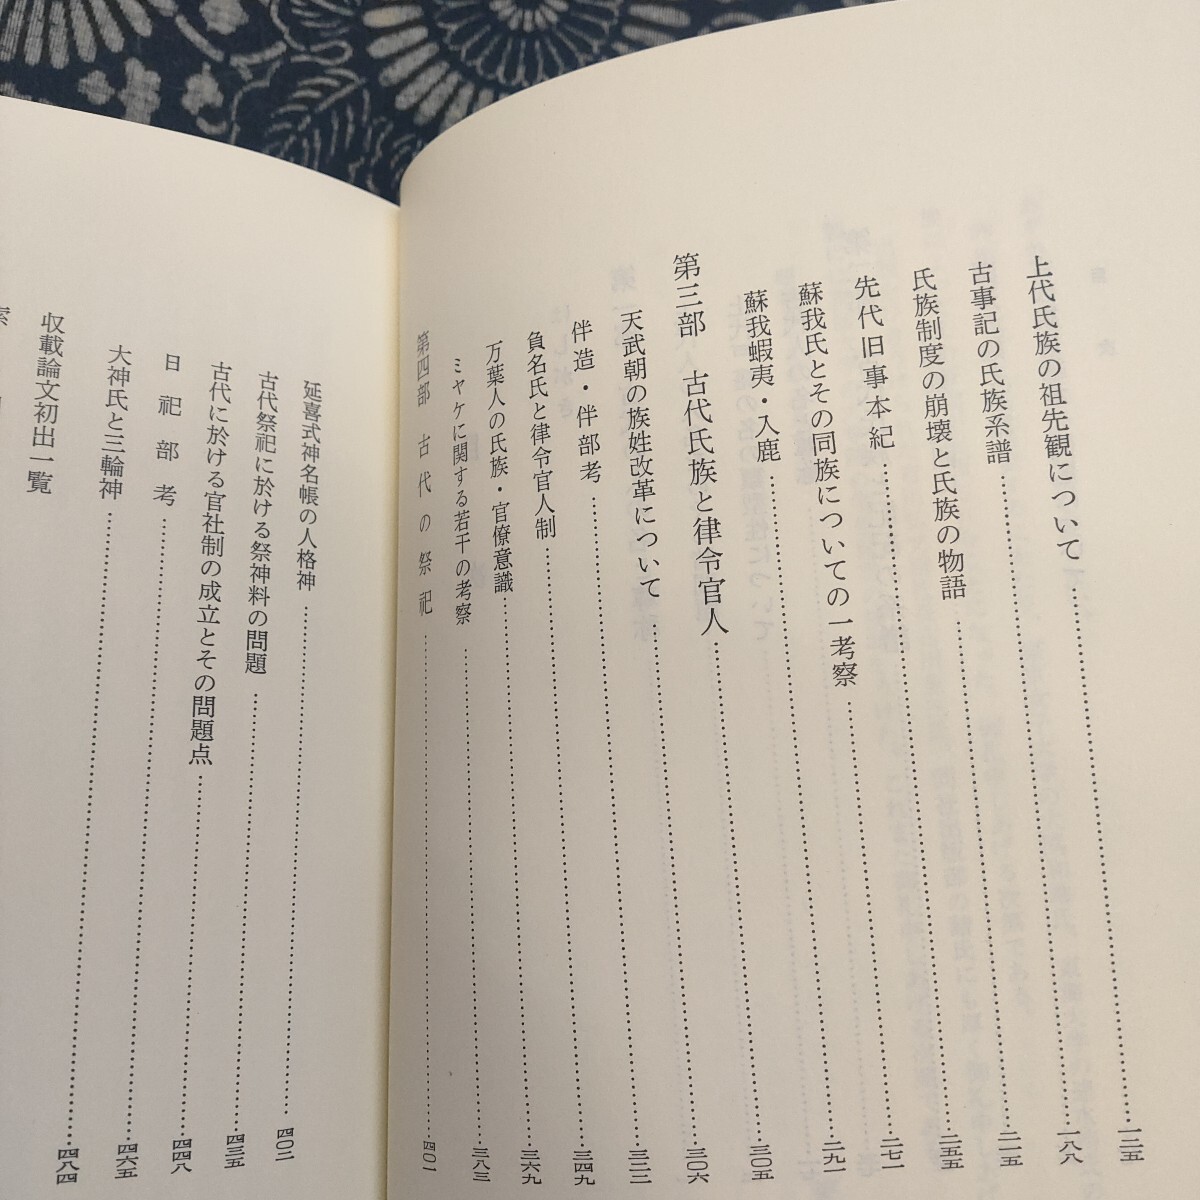 上代氏族の祖先観について 一二五
古事記の氏族系譜 一八八
氏族制度の崩壊と氏族の物語 二一五
先代旧事本紀 二五五
蘇我氏とその同族についての一考察 二七一
蘇我蝦夷・入鹿 二九一
第三部 古代氏族と律令官人 三〇五
天武朝の族姓改革について 三〇六
伴造・伴部考 三二二
負名氏と律令官人制 三四九
万葉人の氏族・官僚意識 三六九
ミヤケに関する若干の考察 三八三
第四部 古代の祭祀 四〇一
延喜式神名帳の人格神 四〇二
古代祭祀に於ける祭神料の問題 四三五
古代に於ける官社制の成立とその問題点 四四八
日祀部考 四六五
大神氏と三輪神 四八四
収載論文初出一覧